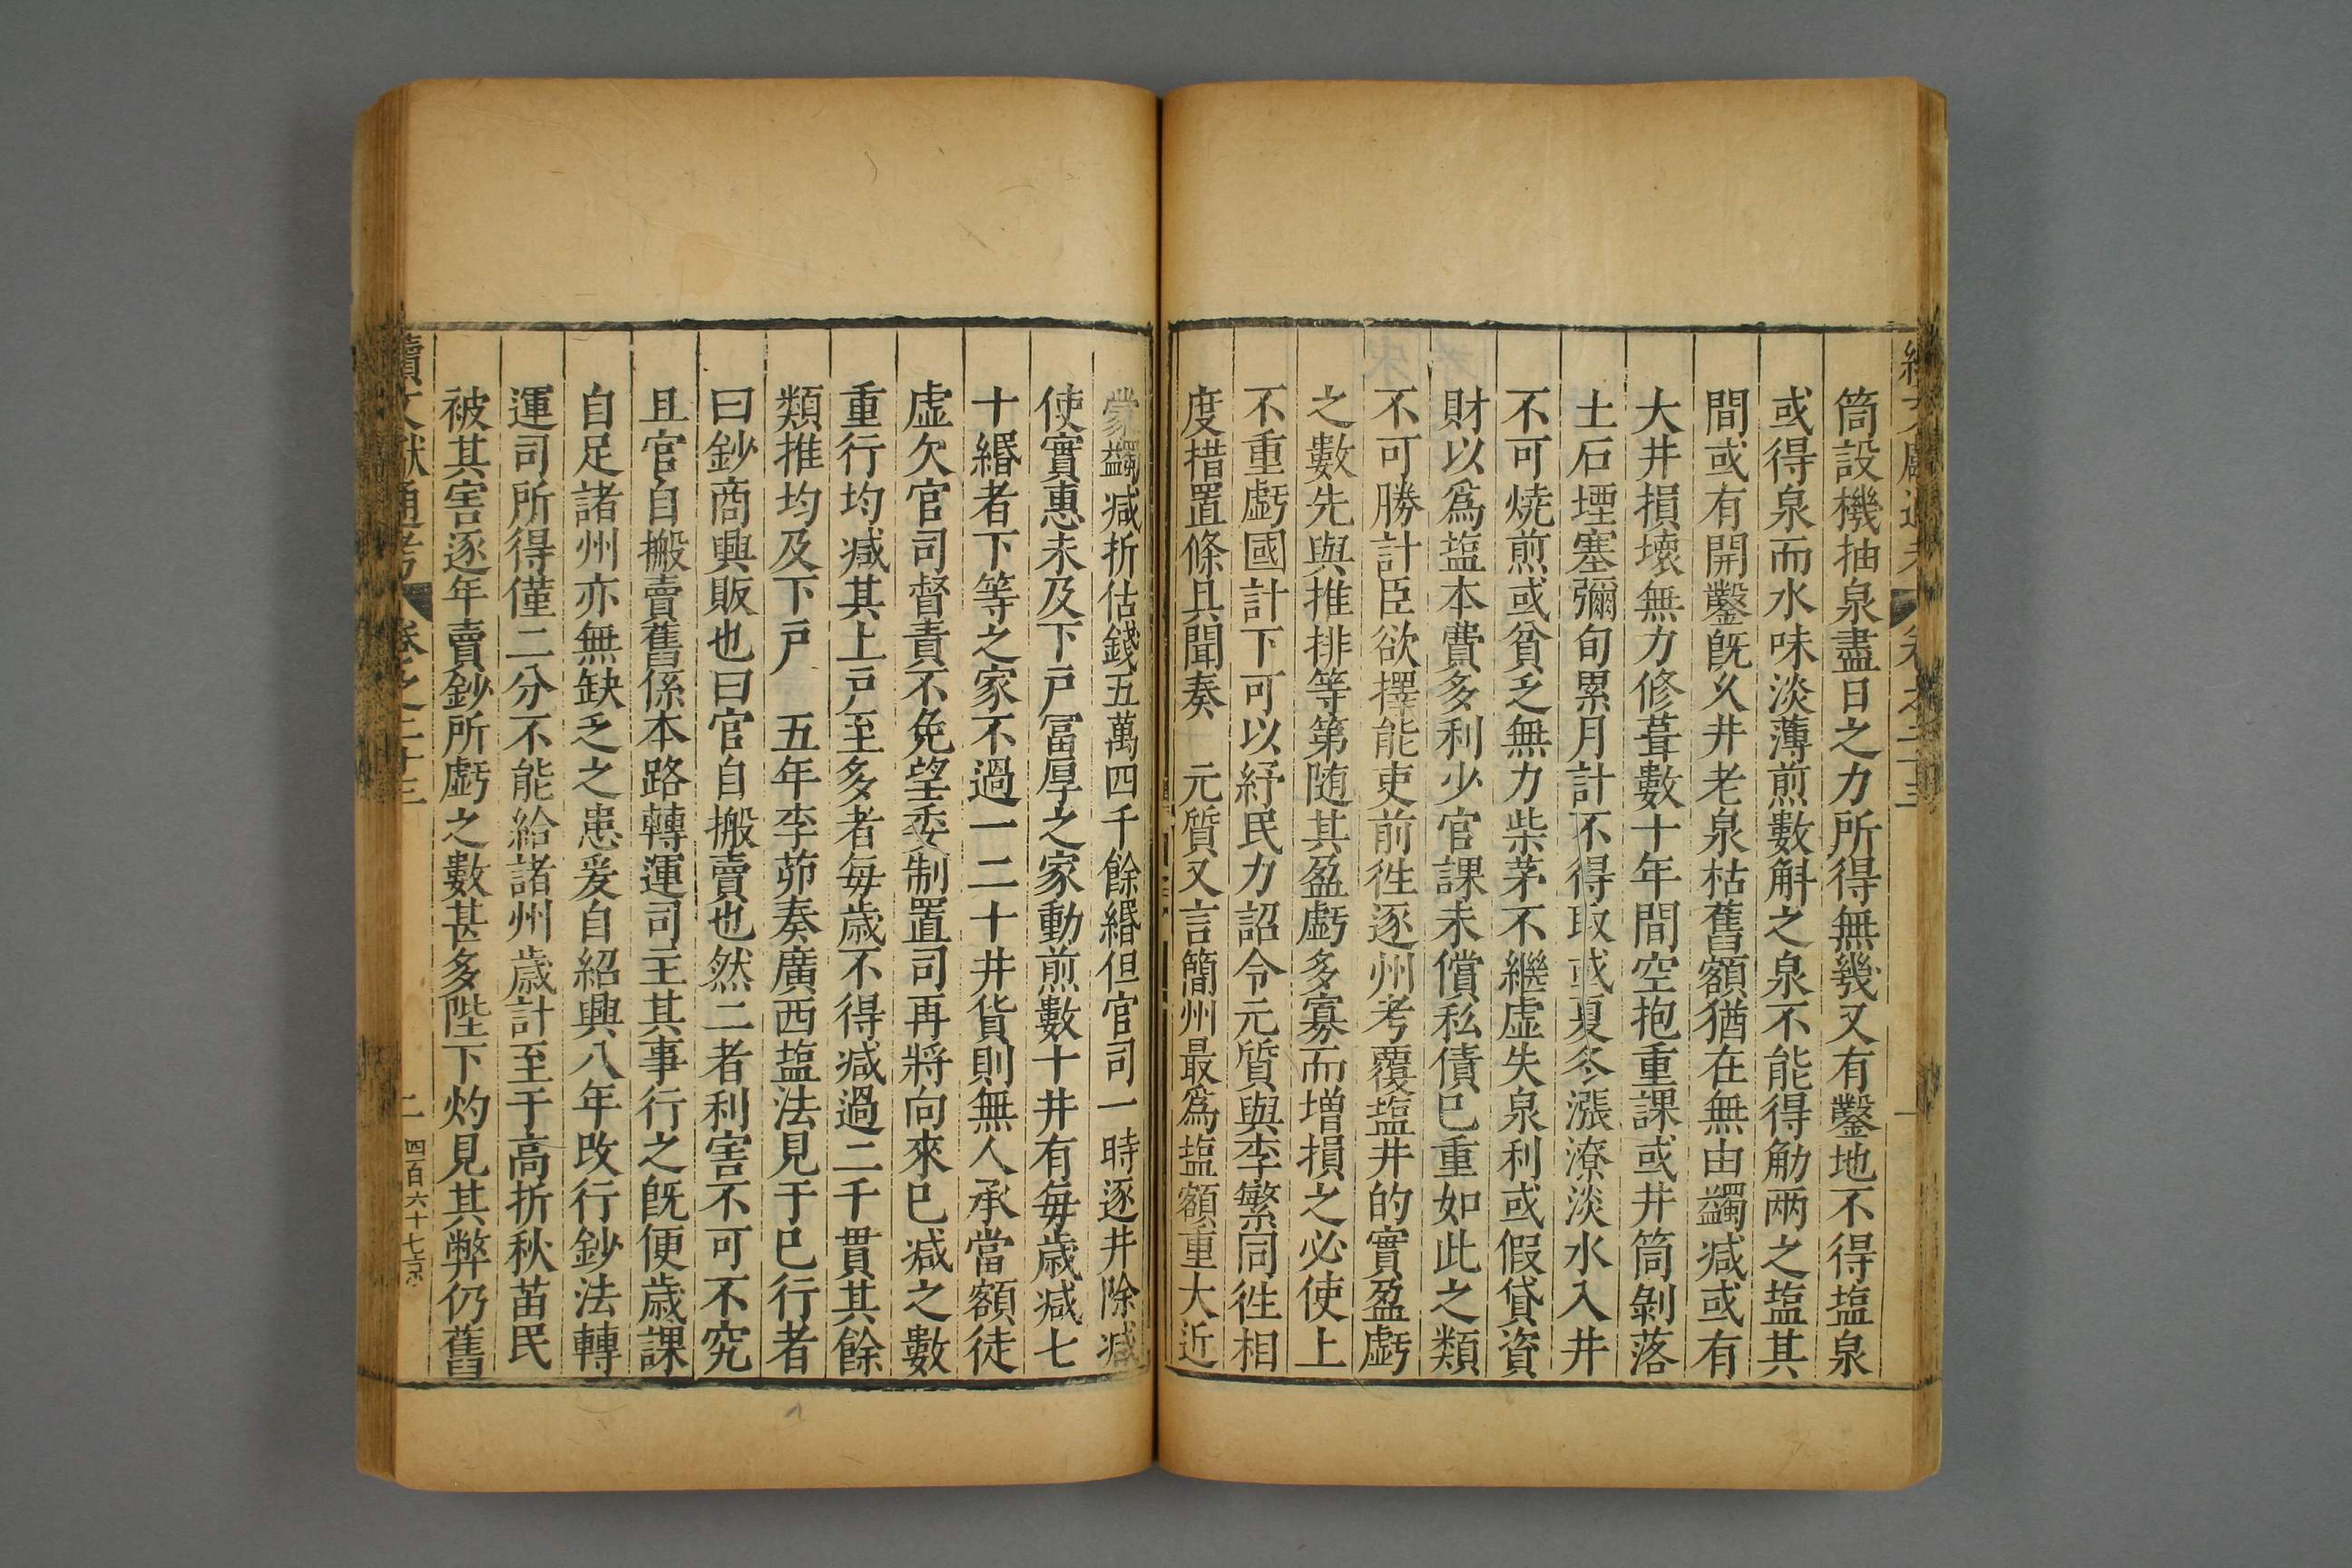 筒設機抽泉盡日之力所得無幾又有鑿地不得塩泉
或得泉而水味淡薄煎數斛之泉不能得觔兩之塩其
間或有開鑿旣久井老泉枯舊額猶在無由蠲减或有
大井損壞無力修葺數十年間空抱重課或井筒剝落
土石堙塞彌旬累月計不得取或夏冬漲潦淡水入井
不可燒煎或貧乏無力柴茅不繼虛失泉利或假貸資
財以爲塩本費多利少官課未償私債巳重如此之類
不可勝計臣欲擇能吏前徃逐州考覆塩井的實盈虧
之數先與推排等第随其盈虧多寡而增損之必使上
不重虧國計下可以紓民力詔令元質與李繁同徃相
度措置條具聞奏 元質又言簡州最爲塩額重大近
蒙蠲减折估錢五萬四千餘緡但官司一時逐井除减
使實惠未及下戸冨厚之家動煎數十井有每歲减七
十緡者下等之家不過一二十井貨則無人承當額徒
虛欠官司督責不免望委制置司再將向來巳减之數
重行均减其上戸至多者每歲不得减過二千貫其餘
類推均及下戸 五年李茆奏廣西塩法見于巳行者
曰鈔商興販也曰官自搬賣也然二者利害不可不究
且官自搬賣舊係本路轉運司主其事行之旣便歲課
自足諸州亦無缺乏之患爰自紹興八年改行鈔法轉
運司所得僅二分不能給諸州歲計至于高折秋苗民
被其害逐年賣鈔所虧之數甚多陛下灼見其弊仍舊
續文獻通考 卷之二十三 二 四百六十七